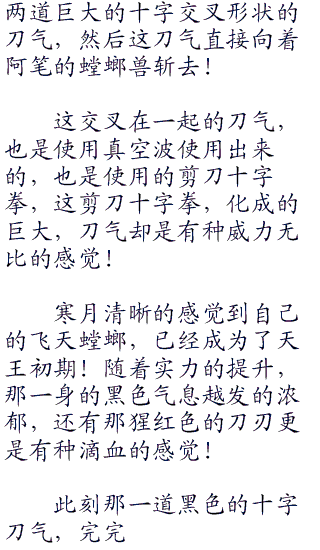 两道巨大的十字交叉形状的
刀气，然后这刀气直接向着
阿笔的螳螂兽斩去！
这交叉在一起的刀气，
也是使用真空波使用出来
的，也是使用的剪刀十字
拳，这剪刀十字拳，化成的
巨大，刀气却是有种威力无
比的感觉！
寒月清晰的感觉到自己
的飞天螳螂，已经成为了天
王初期！随着实力的提升，
那一身的黑色气息越发的浓
郁，还有那猩红色的刀刃更
是有种滴血的感觉！
此刻那一道黑色的十字
刀气，完完